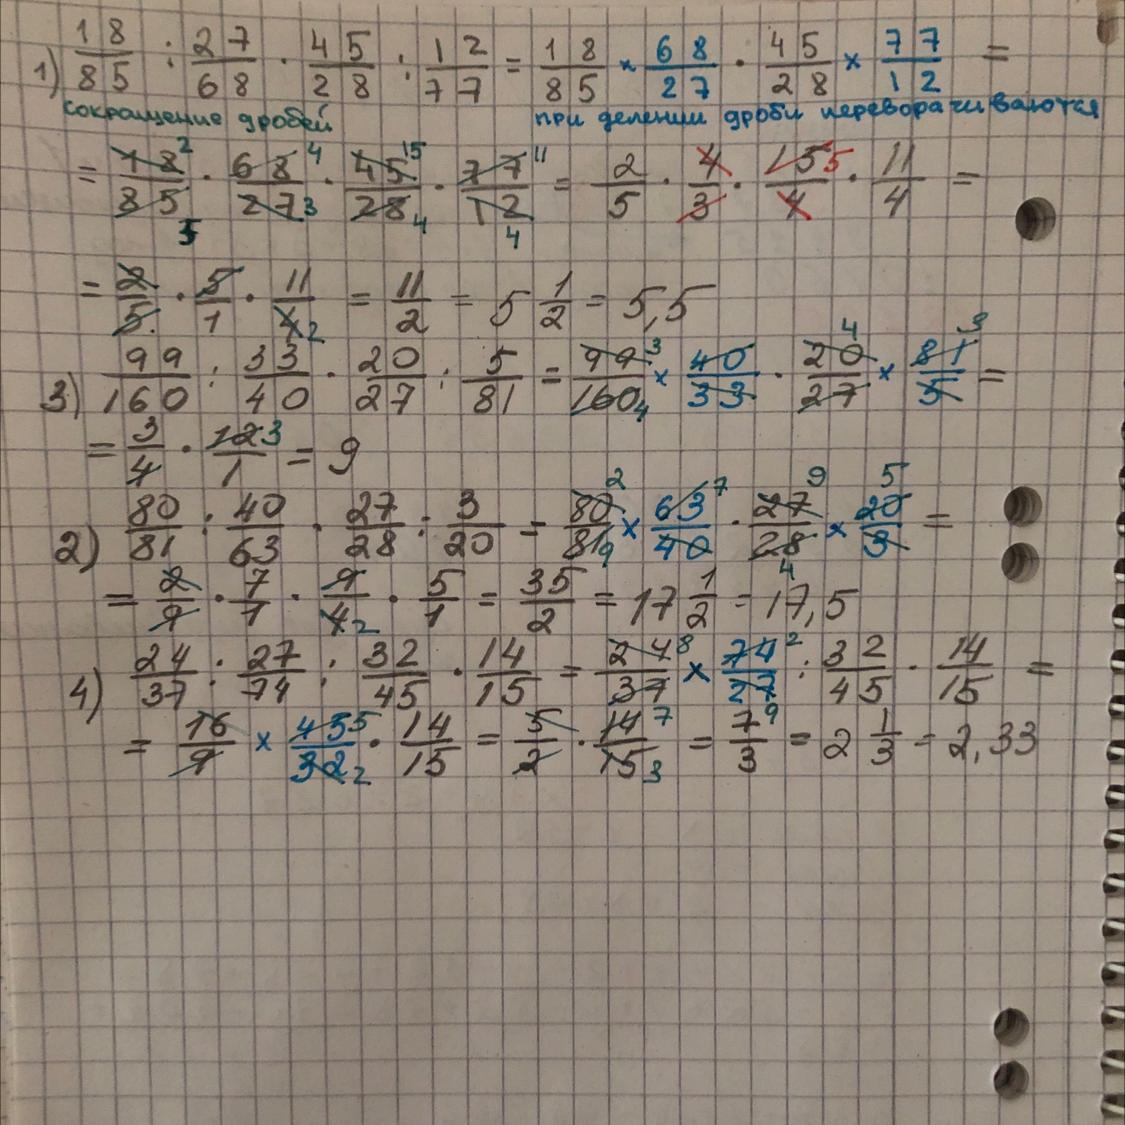 1) 18/85 : 27/68 · 45/28 : 12/77 = 18/85 × 68/27 · 45/28 × 77/12 =
сокращение дробей при делении дроби переворачиваются
= 18 2/85 5 · 68 4/27 3 · 45 15/28 4 · 77 11/12 4 = 2/5 · 4/3 · 15 5/4 · 11/4 =
= 2/5 · 5/1 · 11/4 2 = 11/2 = 5 1/2 = 5,5
3) 99/160 : 33/40 · 20/27 : 5/81 = 99 3/160 4 × 40/33 · 20 4/27 × 81 3/5 =
= 3/4 · 12 3/1 = 9
2) 80/81 : 40/63 · 27/28 : 3/20 = 80 2/81 9 × 63 7/40 · 27 9/28 4 × 20 5/3 =
= 2/9 · 7/1 · 9/4 2 · 5/1 = 35/2 = 17 1/2 = 17,5
4) 24/37 : 27/74 : 32/45 · 14/15 = 24 8/37 × 74 2/27 9 : 32/45 · 14/15 =
= 16/9 × 45 5/32 2 · 14/15 = 5/2 · 14 7/15 3 = 7/3 = 2 1/3 = 2,33